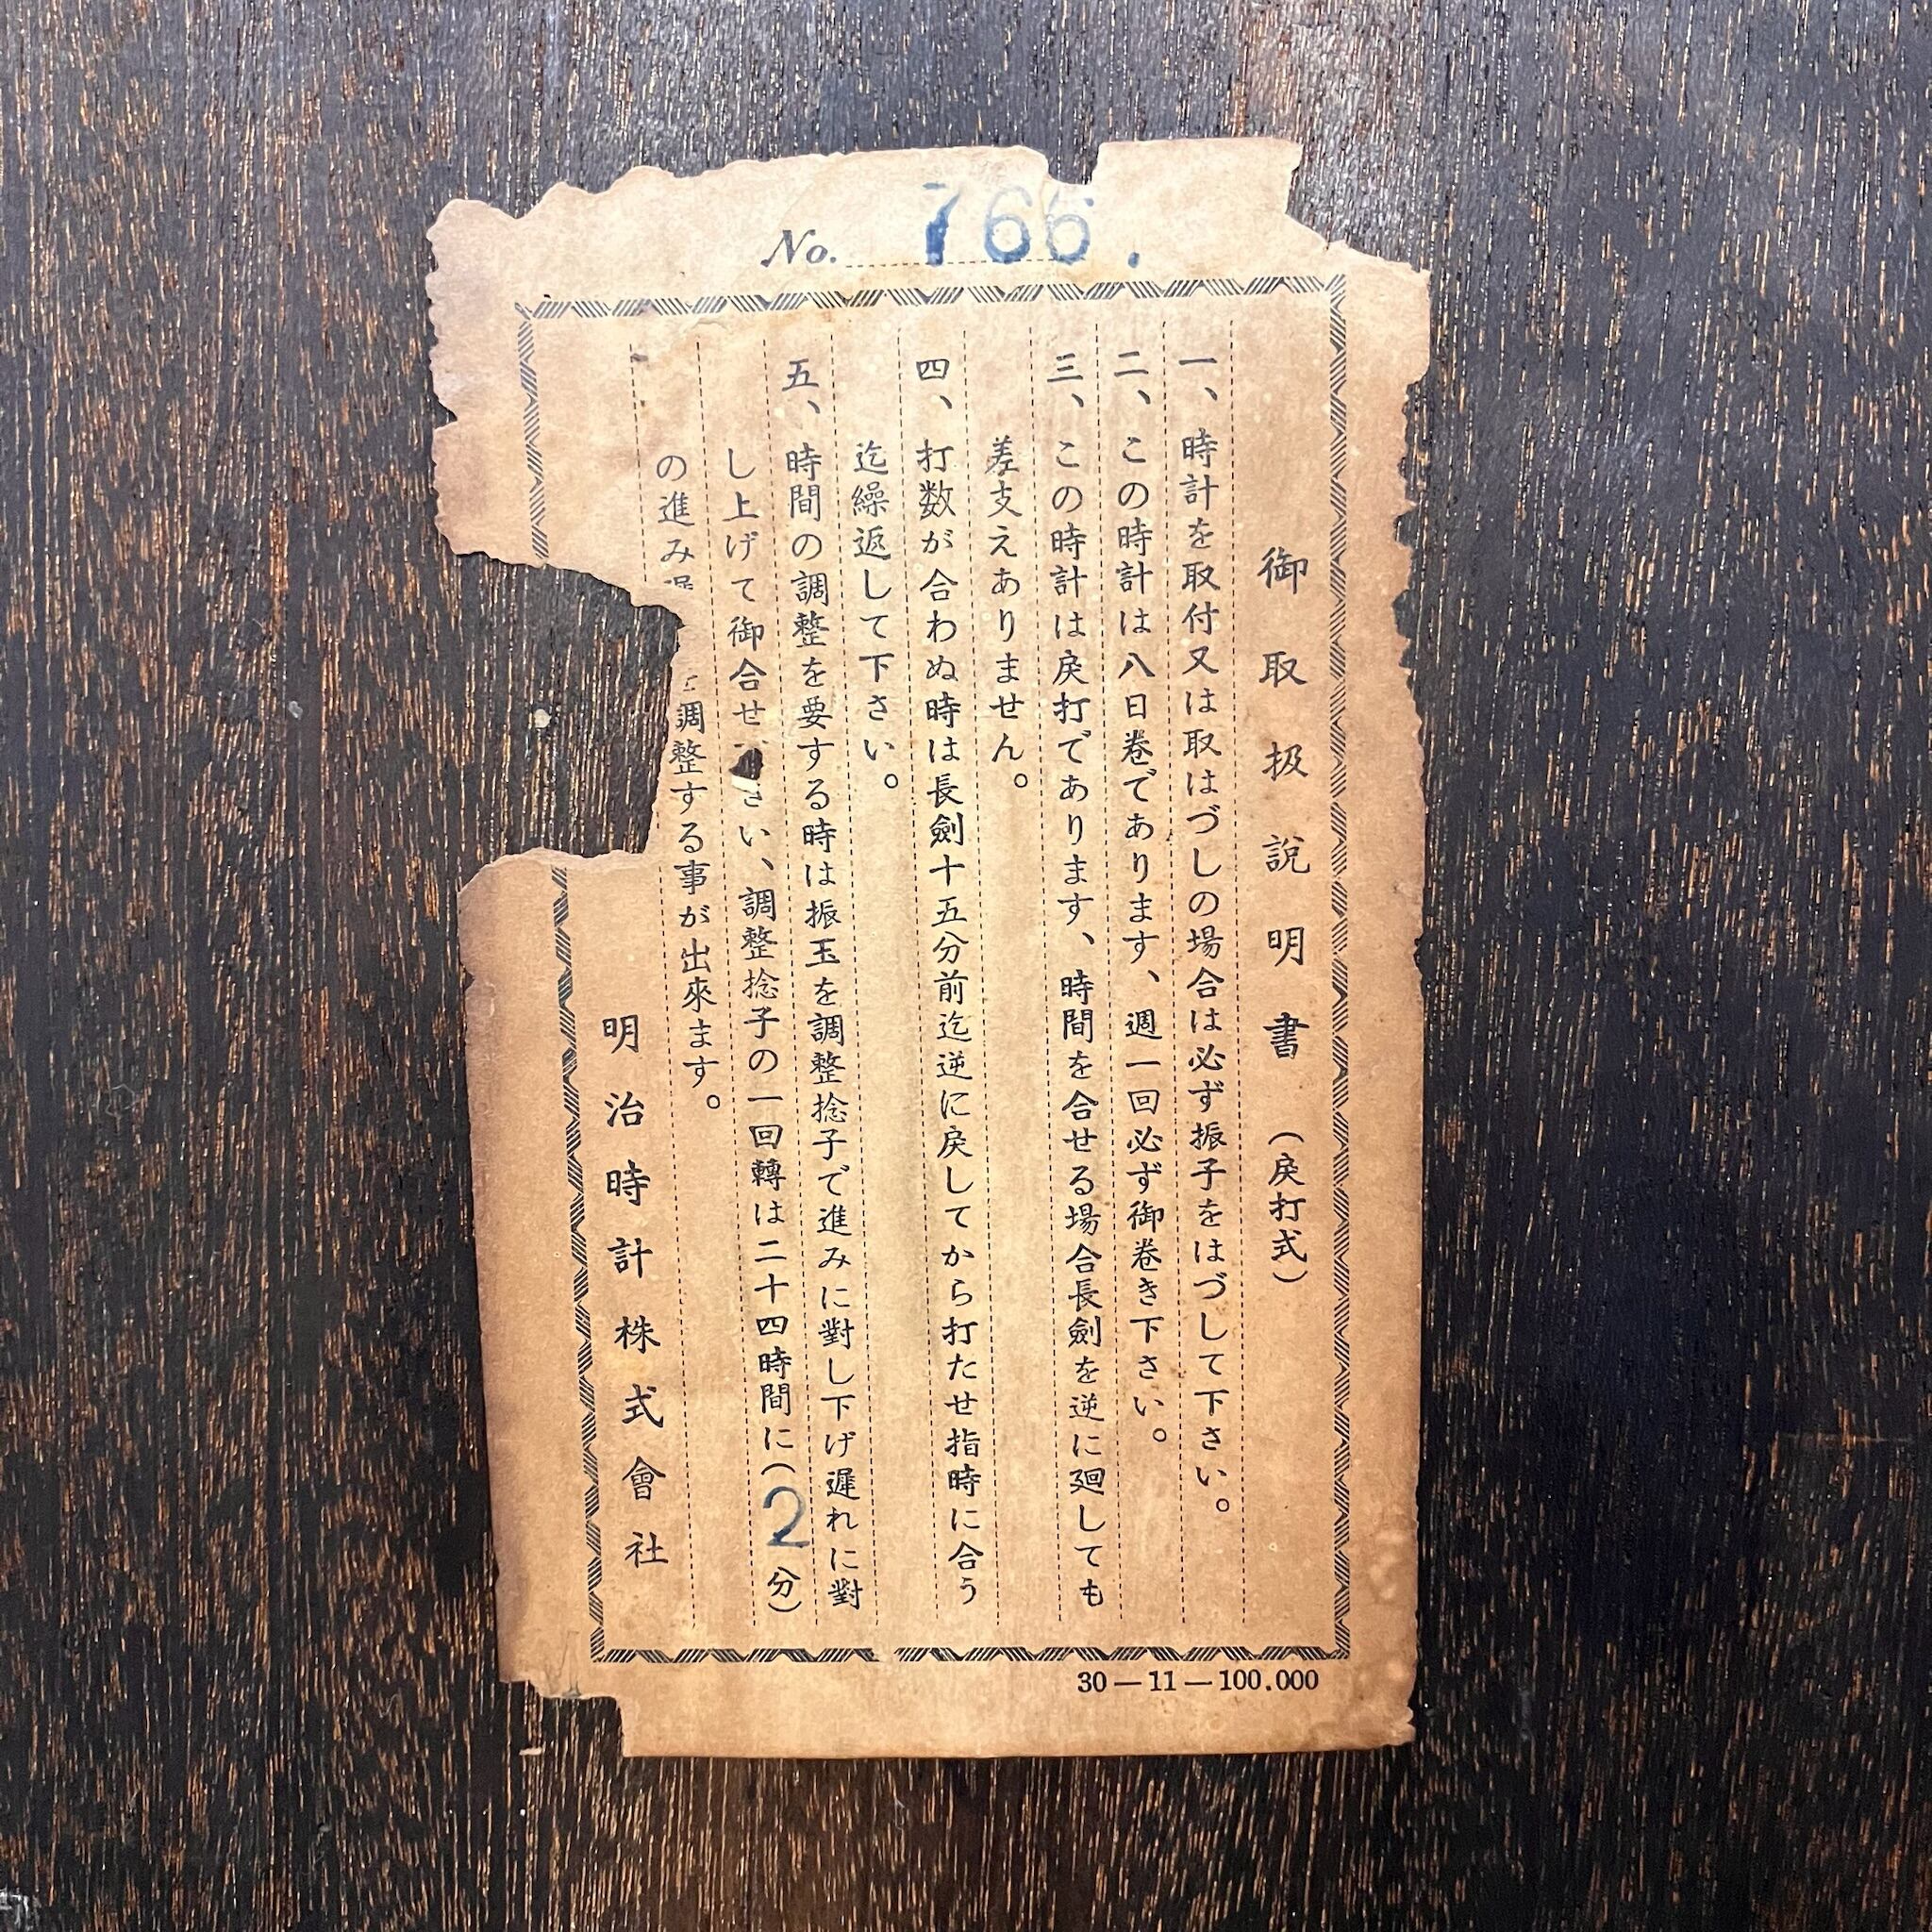 No. 766.
御取扱説明書（戻打式）
一、時計を取付又は取はづしの場合は必ず振子をはづして下さい。
二、この時計は八日巻であります、週一回必ず御巻き下さい。
三、この時計は戻打であります、時間を合せる場合長劍を逆に廻しても
差支えありません。
四、打数が合わぬ時は長劍十五分前迄逆に戻してから打たせ指時に合う
迄繰返して下さい。
五、時間の調整を要する時は振玉を調整捻子で進みに對し下げ遲れに對
し上げて御合せ さい、調整捻子の一回轉は二十四時間に（2分）
の進み 調整する事が出來ます。
明治時計株式會社
30—11—100.000